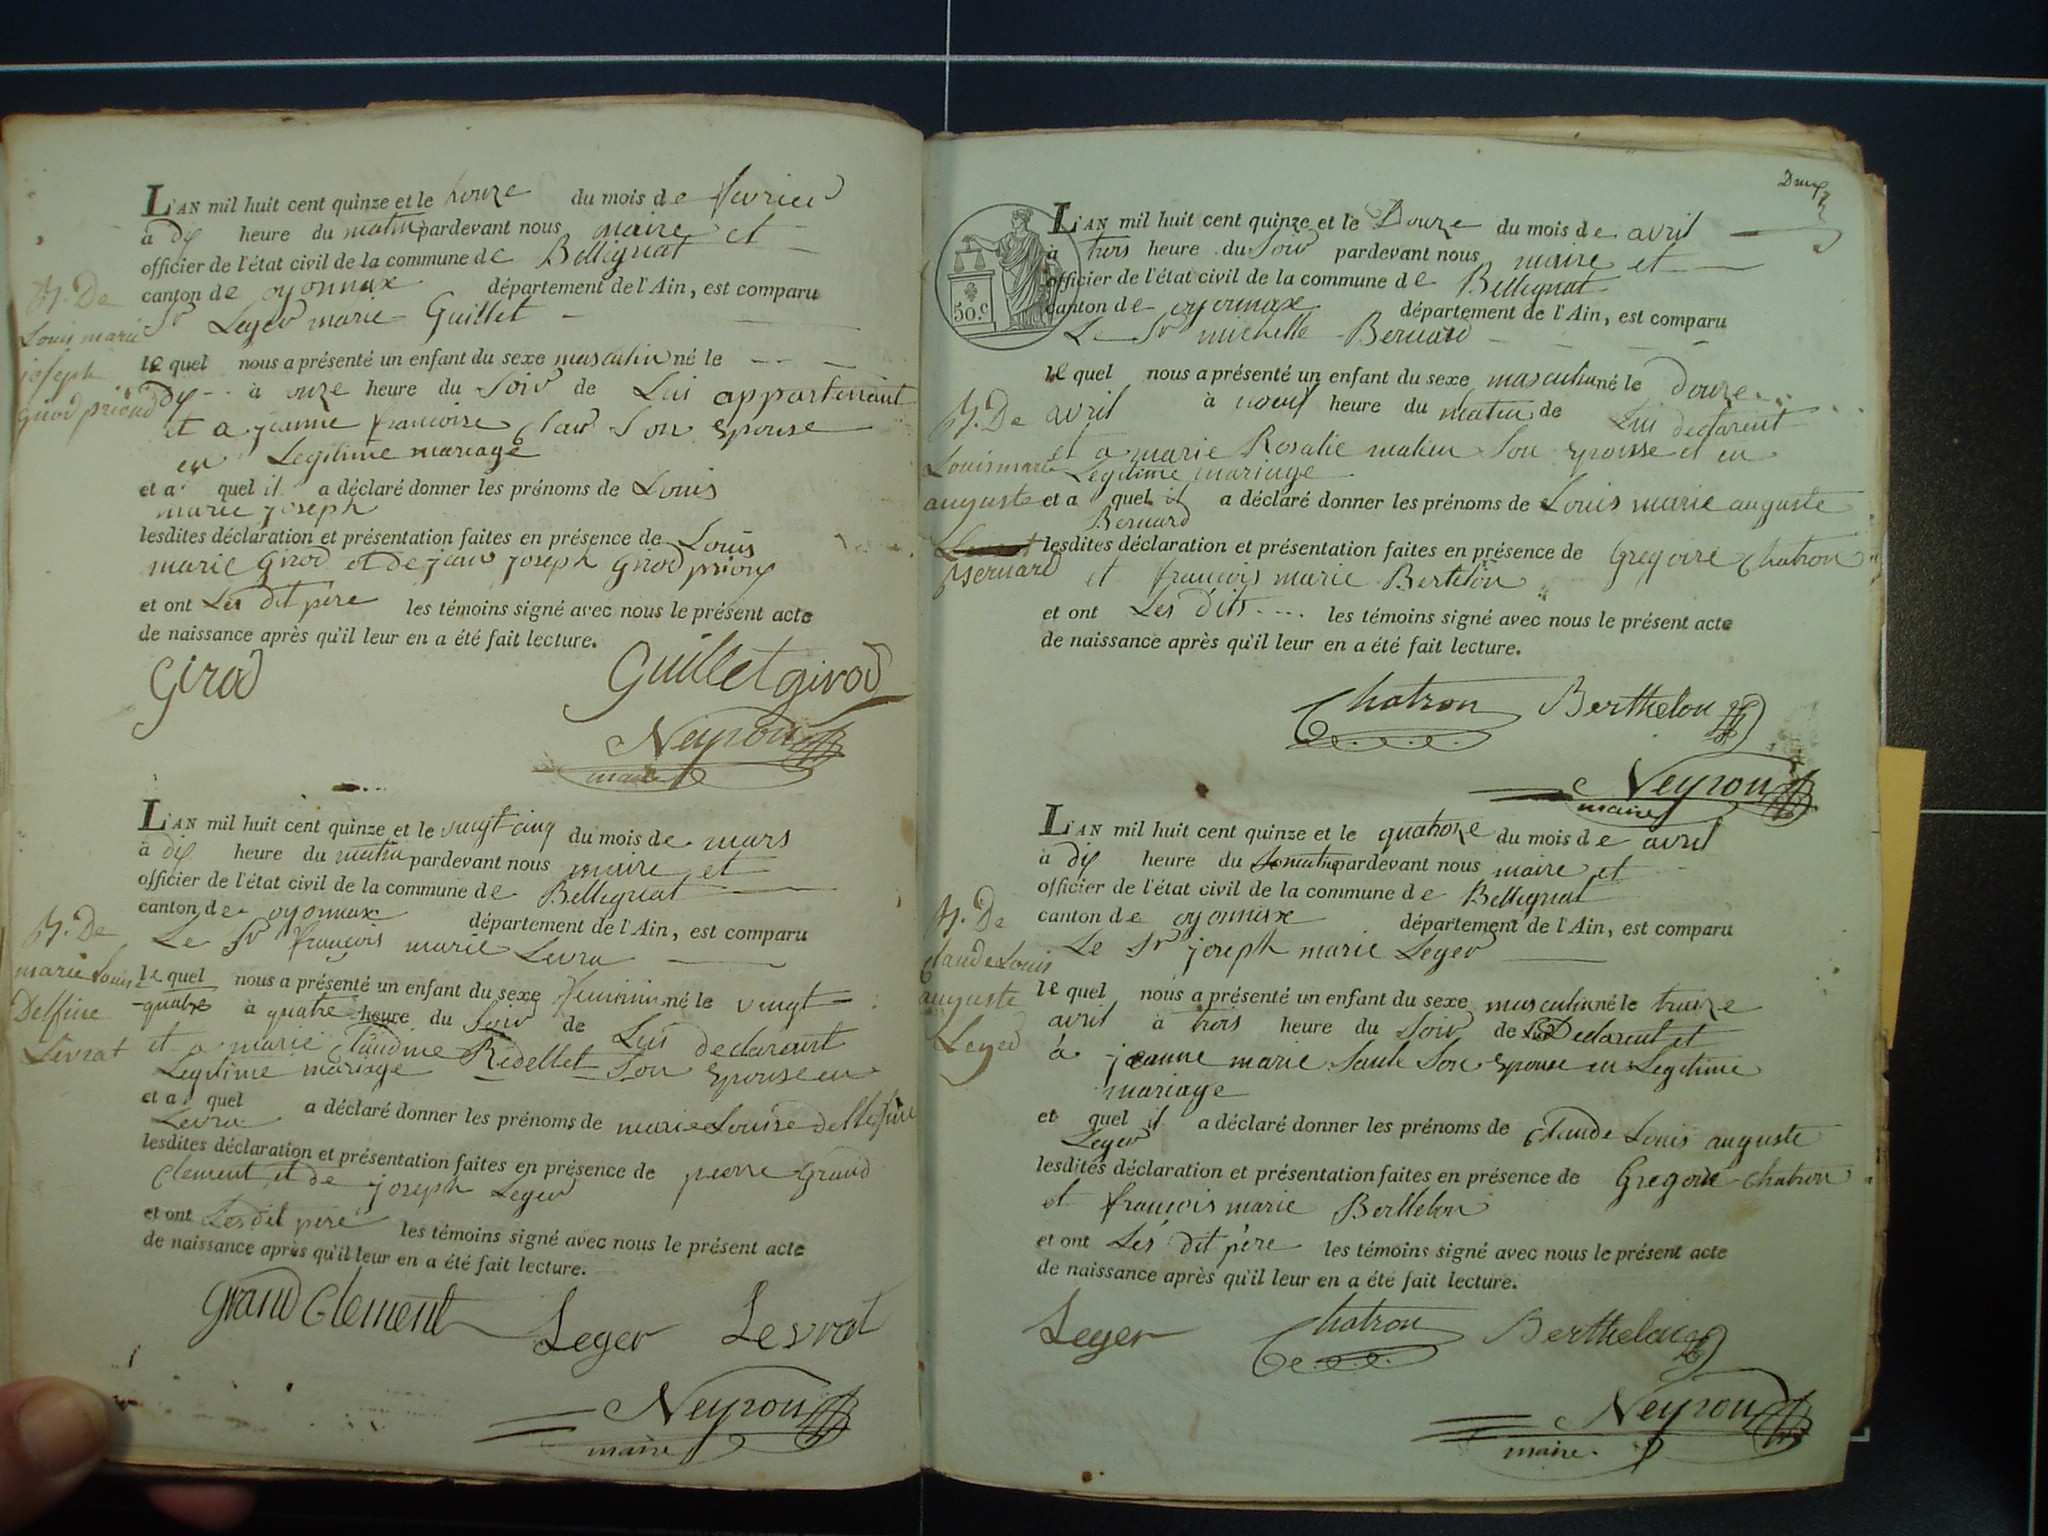 L'AN mil huit cent quinze et le onze du mois de fevrier
à dix heure du matin pardevant nous maire et
officier de l'état civil de la commune de Bellegnat
canton de oyonnax département de l'Ain, est comparu
Sr Leger marie Guillet
le quel nous a présenté un enfant du sexe masculin né le
dix à onze heure du Soir de Lui appartenant
et a jeanne francoise Son Epouse
en Legitime mariage
et a quel il a déclaré donner les prénoms de Louis
marie joseph
lesdites déclaration et présentation faites en présence de Louis
marie Girod et de jean joseph Girod prioux
et ont Les dit pere les témoins signé avec nous le présent acte
de naissance après qu'il leur en a été fait lecture.
N. De
Louis marie
joseph
Girod
Girod Guillet girod
Neyron
maire
L'AN mil huit cent quinze et le vingt cinq du mois de mars
à dix heure du matin pardevant nous maire et
officier de l'état civil de la commune de Bellegnat
canton de oyonnax département de l'Ain, est comparu
Le Sr françois marie Levra
le quel nous a présenté un enfant du sexe feminin né le vingt
quatre à quatre heure du Soir de Lui declarent
et a marie Claudine Redellet Son Epouse en
Legitime mariage
et a quel a déclaré donner les prénoms de marie Louise dellefine
Levra
lesdites déclaration et présentation faites en présence de pierre Grand
Clement et de joseph Leger
et ont Les dit pere les témoins signé avec nous le présent acte
de naissance après qu'il leur en a été fait lecture.
N. De
marie Louis
Delfine
Livrat
Grand Clement Leger Levrat
Neyron
maire
L'AN mil huit cent quinze et le Douze du mois de avril
à trois heure du Soir pardevant nous maire et
officier de l'état civil de la commune de Bellegnat
canton de oyonnax département de l'Ain, est comparu
50.c
Le Sr michelle Bernard
le quel nous a présenté un enfant du sexe masculin né le douze
avril à noeuf heure du matin de Lui declarent
et a marie Rosalie matieu Son Epousse et en
Legitime mariage
et a quel il a déclaré donner les prénoms de Louis marie auguste
Bernard
lesdites déclaration et présentation faites en présence de Gregoire Chatron
et françois marie Bertelon
et ont Les dits les témoins signé avec nous le présent acte
de naissance après qu'il leur en a été fait lecture.
N. De
Louis marie
auguste
Bernard
Chatron Berthelon
Neyron
maire
L'AN mil huit cent quinze et le quatorze du mois de avril
à dix heure du matin pardevant nous maire et
officier de l'état civil de la commune de Bellegnat
canton de oyonnax département de l'Ain, est comparu
Le Sr joseph marie Leger
le quel nous a présenté un enfant du sexe masculin né le treize
avril à trois heure du Soir de Declarent et
à jeanne marie Son Epouse en Legitime
mariage
et quel il a déclaré donner les prénoms de Claude Louis auguste
Leger
lesdites déclaration et présentation faites en présence de Gregoire Chatron
et françois marie Berttelon
et ont Les dit père les témoins signé avec nous le présent acte
de naissance après qu'il leur en a été fait lecture.
N. De
Claude Louis
auguste
Leger
Leger Chatron Berthelon
Neyron
maire